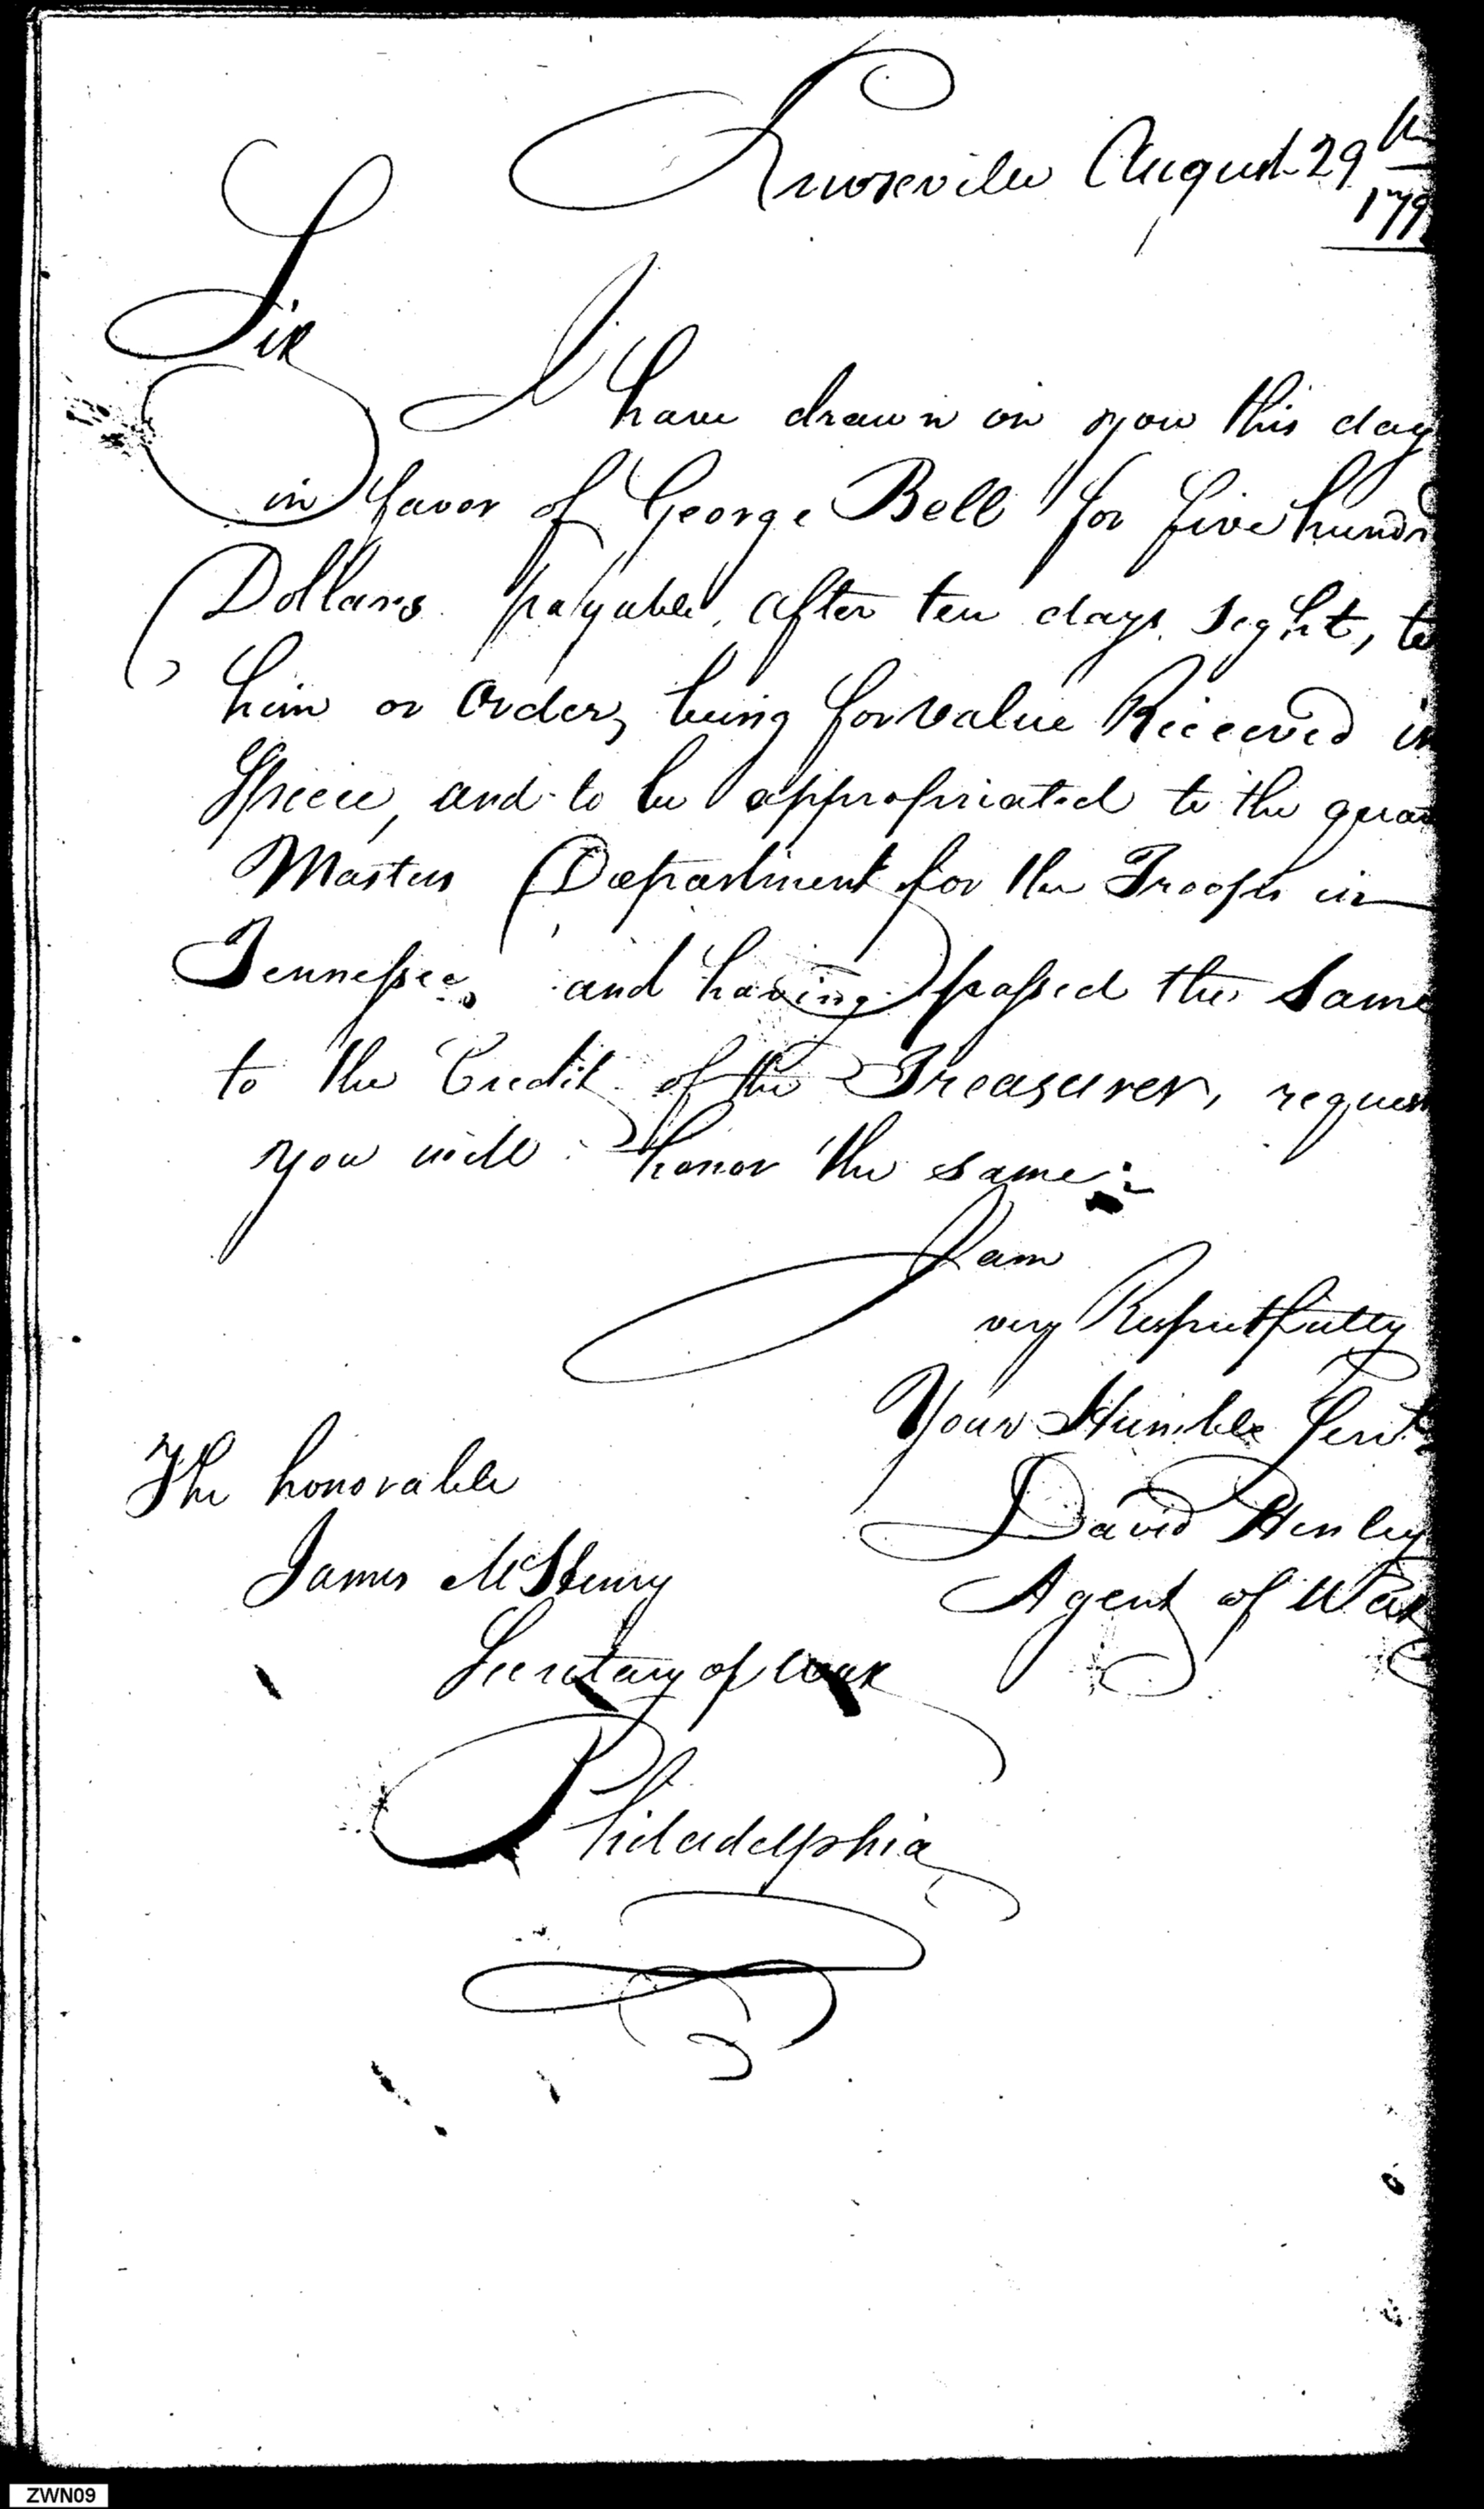 Knoxville August 29th
179
Sir
I have drawn on you this day
in favor of George Bell for five hundr
Dollars payable, after ten days sight, to
him or order, being for value Received in
Specie, and to be appropriated to the quar
Masters Department for the Troops in
Tennessee, and having passed the same
to the Credit of the Treasurer, request
you will honor the same:
I am
very Respectfully
Your Humble Servt
David Henley
Agent of War
The honorable
James McHenry
Secretary of War
Philadelphia
ZWN09